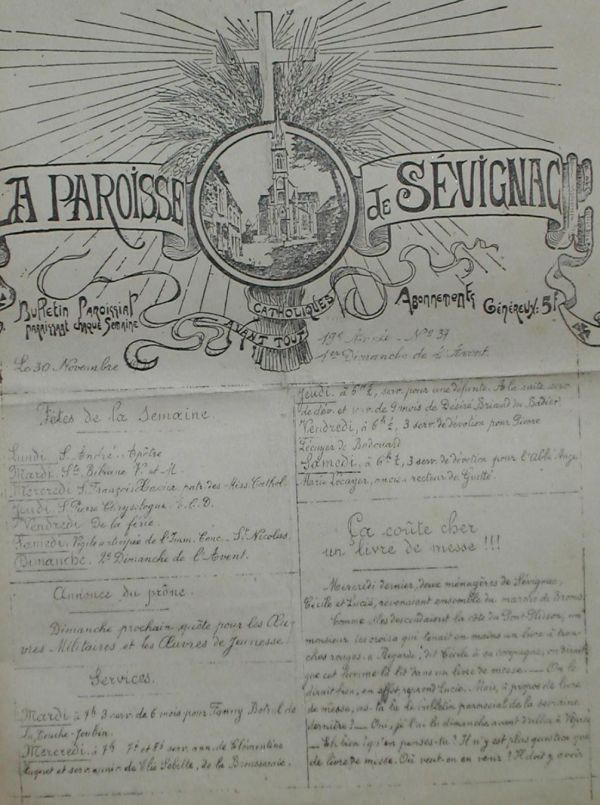 LA PAROISSE
de SÉVIGNAC
Bulletin Paroissial
paraissant chaque Semaine
CATHOLIQUES
AVANT TOUT
Abonnements
Généreux: 5f
Le 30 Novembre
19e Année - No 37
1er Dimanche de l'Avent.
Fêtes de la Semaine
Lundi. S. André. Apôtre
Mardi. Ste Bibiane V. et M.
Mercredi. S. François Xavier, patr. des Miss. Cathol.
Jeudi. S. Pierre Chrysologue. E. C. D.
Vendredi. De la férie.
Samedi. Vigile anticipée de l'Imm. Conc. St Nicolas.
Dimanche. 2e Dimanche de l'Avent.
Annonce du prône.
Dimanche prochain quête pour les Œu-
vres Militaires et les Œuvres de Jeunesse
Services.
Mardi à 7h 3 serv. de 6 mois pour Fanny de
la Touche-Joubin.
Mercredi. à 7h serv. ann. de Clémentine
et serv. de Elie Sebille, de la
Jeudi. à 6h ½, serv. pour une défunte. A la suite serv.
de dév. et serv. de 9 mois de Désiré Briand du
Vendredi, à 6h ½, 3 serv. de dévotion pour Pierre
Lécuyer de
Samedi, à 6h ½, 3 serv. de dévotion pour l'Abbé Ange
Marie Lécuyer, ancien recteur de Guitté.
Ça coûte cher
un livre de messe !!!
Mercredi dernier, deux ménagères de Sévignac,
Cécile et Lucie, revenaient ensemble du marché de Broons.
Comme elles descendaient la côte du Pont-Plisson, un
monsieur les croisa qui tenait en mains un livre à tran-
ches rouges. « Regarde, dit Cécile à sa compagne, on dirait
que cet homme là lit dans un livre de messe. — On le
dirait bien, en effet répond Lucie. Mais, à propos de livre
de messe, as-tu lu le bulletin paroissial de la semaine
dernière? — Oui, je l'ai lu dimanche avant d'aller à
— Eh bien! qu'en penses-tu? Il n'y est plus question que
de livre de messe. Où veut-on en venir? Il doit y avoir